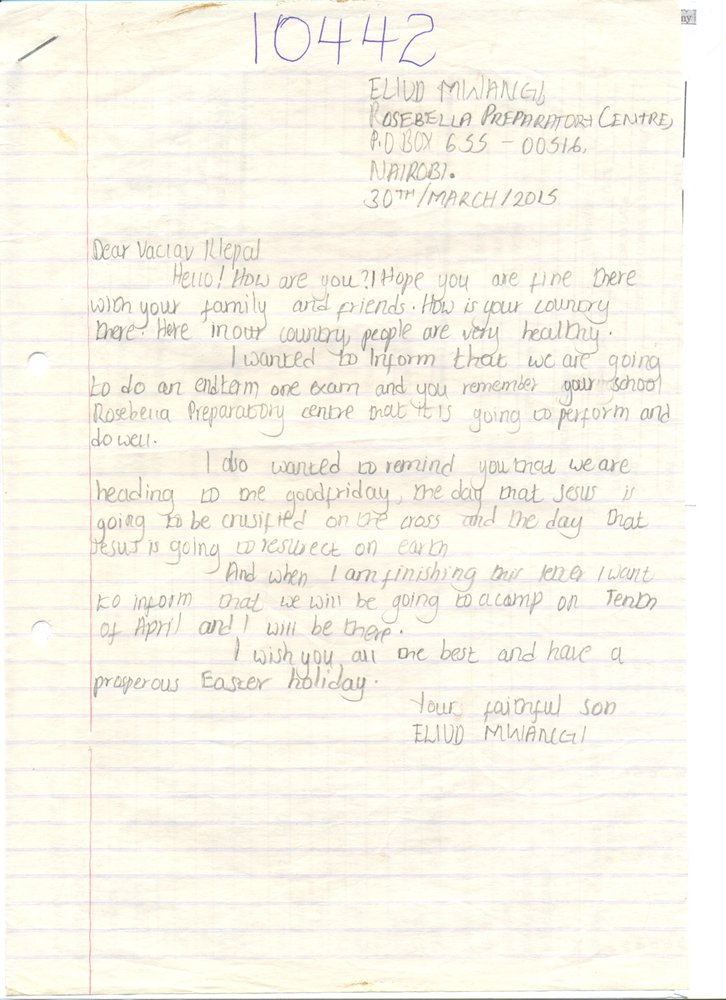 10442
ELIUD MWANGI,
ROSEBELLA PREPARATORY CENTRE,
P.O BOX 655 - 00516,
NAIROBI.
30TH/MARCH/2015
Dear Vaclav Klepal
Hello! How are you? I Hope you are fine there
with your family and friends. How is your country
there. Here in our country, people are very healthy.
I wanted to Inform that we are going
to do an endterm one exam and you remember your school
Rosebella Preparatory centre that it is going to perform and
do well.
I also wanted to remind you that we are
heading to the goodfriday, the day that Jesus is
going to be crusified on the cross and the day that
Jesus is going to resurect on earth
And when I am finishing this letter I want
to inform that we will be going to a camp on Tenth
of April and I will be there.
I wish you all the best and have a
prosperous Easter holiday.
Your faithful son
ELIUD MWANGI